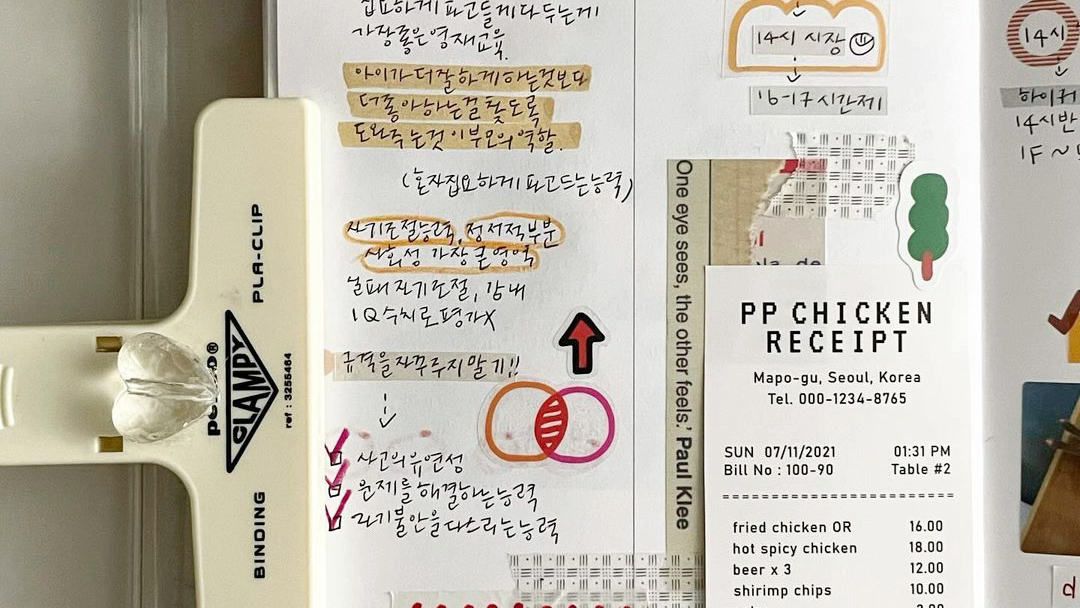 집요하게 파고들게 다 두는게
가장 좋은 영재교육.
아이가 더 잘하게 하는것보다
더 좋아하는걸 찾도록
도와주는것이 부모의 역할.
(혼자 집요하게 파고드는 능력)
자기조절능력, 정서적부분
사회성 가장 큰 영역
실패 자기조절, 인내
IQ 수치로 평가X
규격을 자꾸 주지 말기!!
사고의 유연성
문제를 해결하는 능력
자기불안을 다스리는 능력
14시 시장
16-17 시간제
One eye sees, the other feels.' Paul Klee
PP CHICKEN
RECEIPT
Mapo-gu, Seoul, Korea
Tel. 000-1234-8765
SUN 07/11/2021 01:31 PM
Bill No : 100-90 Table #2
fried chicken OR 16.00
hot spicy chicken 18.00
beer x 3 12.00
shirimp chips 10.00
14시
14시반
1F ~
PLA-CLIP
CLAMPY
ref : 3255464
BINDING